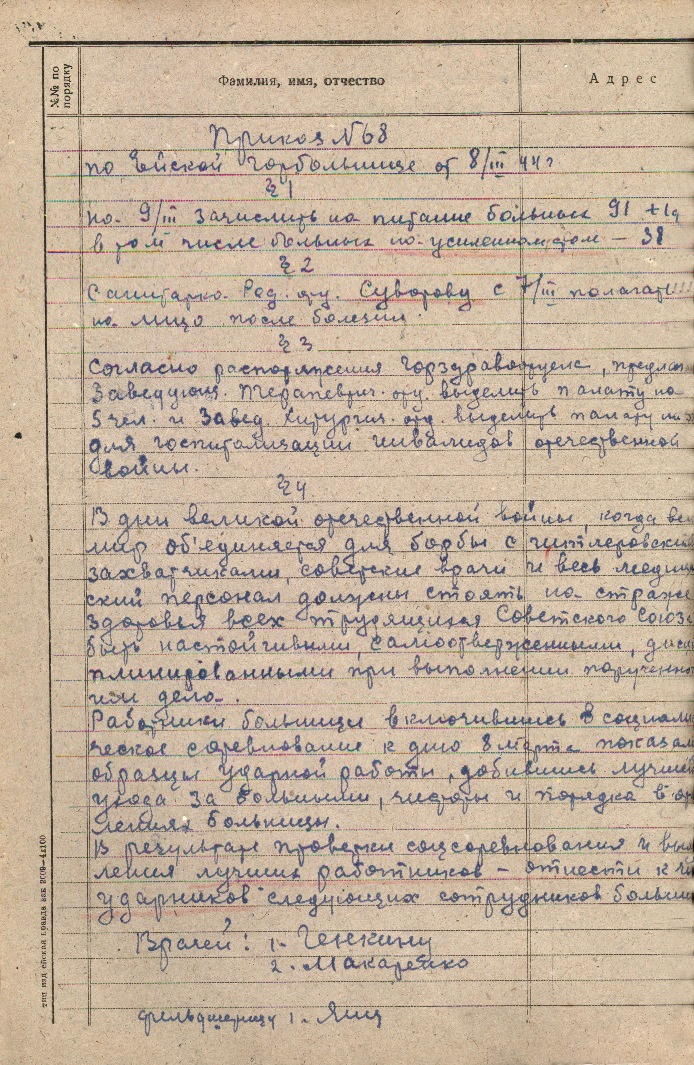 №№ по порядку
Фамилия, имя, отчество
Адрес
Приказ №68
по Ейской горбольнице от 8/III 44 г
§1
на 9/III зачислить на питание больных 91 +
в том числе больных на усиленном стол — 38
§2
Санитарка Род. отд. Суворову с 7/III полагат
на лицо после болезни.
§3
Согласно распоряжения Горздравотдела, предла
Заведующ. Терапевтич. отд. выделить палату на
5 чел. и Завед. Хирургич. отд. выделить палату на
для госпитализации инвалидов отечественной
войны.
§4
В дни великой отечественной войны, когда ве
мир об'единяется для борбы с гитлеровским
захватчиками, советские врачи и весь медици
ский персонал должны стоять на страже
здоровья всех трудящихся Советского Союза
быть настойчивыми, самоотверженными, дисци
плинированными при выполнении порученно
ими дело.
Работники больницы включившись в социали
ческое соревнование к дню 8 марта показал
образцы ударной работы, добившись лучшей
ухода за больными, чистоты и порядка в от
лениях больницы.
В результате проверки соцсоревнования и выя
ления лучших работников — отнести к чи
ударников следующих сотрудников больни
Врачей: 1. Генкину
2. Макаренко
фельдшерицу 1. Яиц
тип изд ейская правда зак 2009—4х100